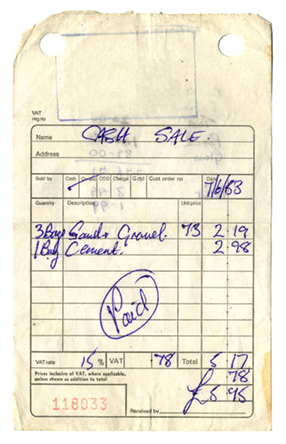 VAT
reg no
Name CASH SALE.
Address
Sold by Cash COD Charge Cust order no Date
7/6/83
Quantity Description Unit price
3 Bags Sand & Gravel. 73 2 19
1 Bag Cement. 2 98
Paid
VAT rate 15 % VAT 78 Total 5 17
Prices inclusive of VAT, where applicable, 78
unless shown as addition to total £5 95
118033
Received by